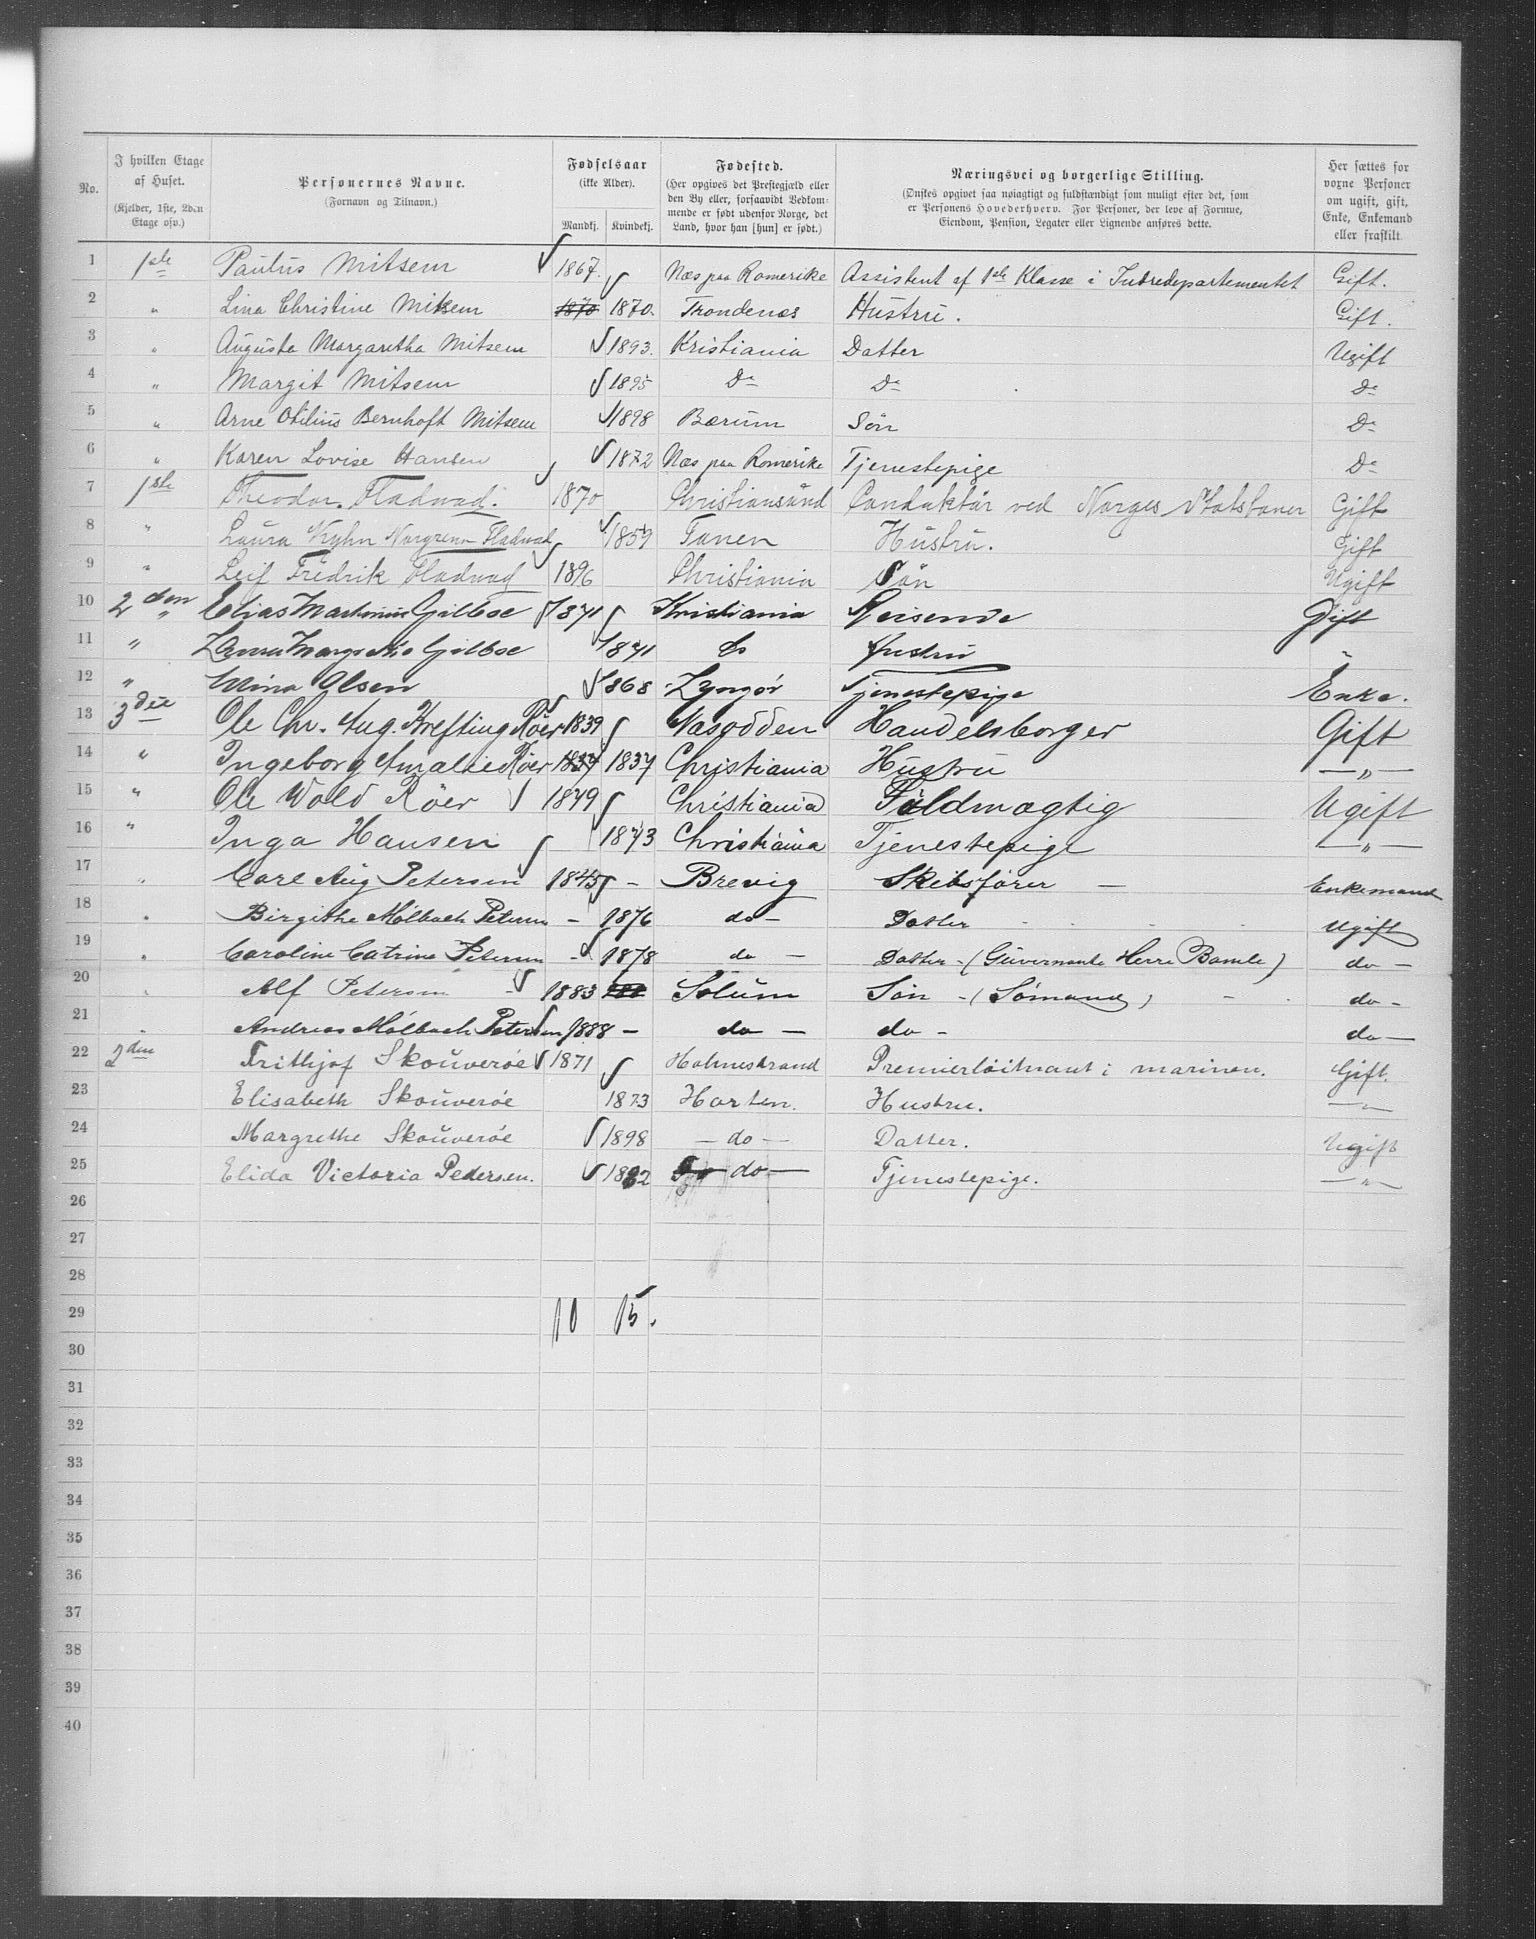 No.
I hvilken Etage af Huset. (Kjelder, 1ste, 2den Etage osv.)
Personernes Navne. (Fornavn og Tilnavn.)
Fødselsaar (ikke Alder). Mandkj. Kvindekj.
Fødested. (Her opgives det Prestegjæld eller den By eller, forsaavidt Vedkommende er født udenfor Norge, det Land, hvor han [hun] er født.)
Næringsvei og borgerlige Stilling. (Ønskes opgivet saa nøiagtigt og fuldstændigt som muligt efter det, som er Personens Hovederhverv. For Personer, der leve af Formue, Eiendom, Pension, Legater eller Lignende anføres dette.
Her sættes for voxne Personer om ugift, gift, Enke, Enkemand eller fraskilt.
1 1ste Paulus Mitsem 1867. Næs paa Romerike Assistent af 1ste Klasse i Indredepartementet Gift.
2 " Lina Christine Mitsem 1870 1870. Trondenæs Hustru. Gift.
3 " Augusta Margaretha Mitsem 1893. Kristiania Datter Ugift
4 " Margit Mitsem 1895 Do Do Do
5 " Arne Otilius Bernhoft Mitsem 1898 Bærum Søn Do
6 " Karen Lovise Hansen 1872 Næs paa Romerike Tjenestepige Do
7 1ste Theodor Fladvad. 1870 Christiansund Conduktør ved Norges Statsbaner Gift
8 " Laura Kyhn Norgrenn Fladvad 1859 Tanen Hustru. Gift
9 " Leif Fredrik Fladvad 1896 Christiania Søn Ugift
10 2den " Elias Martinius Gilboe 1871 Kristiania Reisende Gift
11 " Laura Margrethe Gilboe 1871 do Hustru "
12 " Mina Olsen 1868 Lyngør Tjenestepige Enke.
13 3die Ole Chr. Aug. Krefting Röer 1839 Næsodden Handelsborger Gift
14 " Ingeborg Amalie Röer 1837 1837 Christiania Hustru — " —
15 " Ole Wold Röer 1879 Christiania Fuldmægtig Ugift
16 " Inga Hansen 1873 Christiania Tjenestepige — " —
17 " Carl Aug Petersen 1845 – Brevig Skibsfører — Enkemand
18 " Birgithe Mølbach Petersen – 1876 do – Datter Ugift
19 " Caroline Catrine Petersen – 1878 do — Datter – (Guvernante Herre Bamle) do –
20 " Alf Petersen – 1883 Solum Søn – (Sømand) – do –
21 " Andreas Mølbach Petersen 1888 – do — do – do —
22 2den Frithjof Skouverøe 1871 Holmestrand Premierløitnant i marinen. Gift.
23 Elisabeth Skouverøe 1873 Horten. Hustru. — " —
24 Margrethe Skouverøe 1898 — do — Datter. Ugift
25 Elida Victoria Pedersen. 1882 do — Tjenestepige. — " —
26
27
28
29 10 15.
30
31
32
33
34
35
36
37
38
39
40